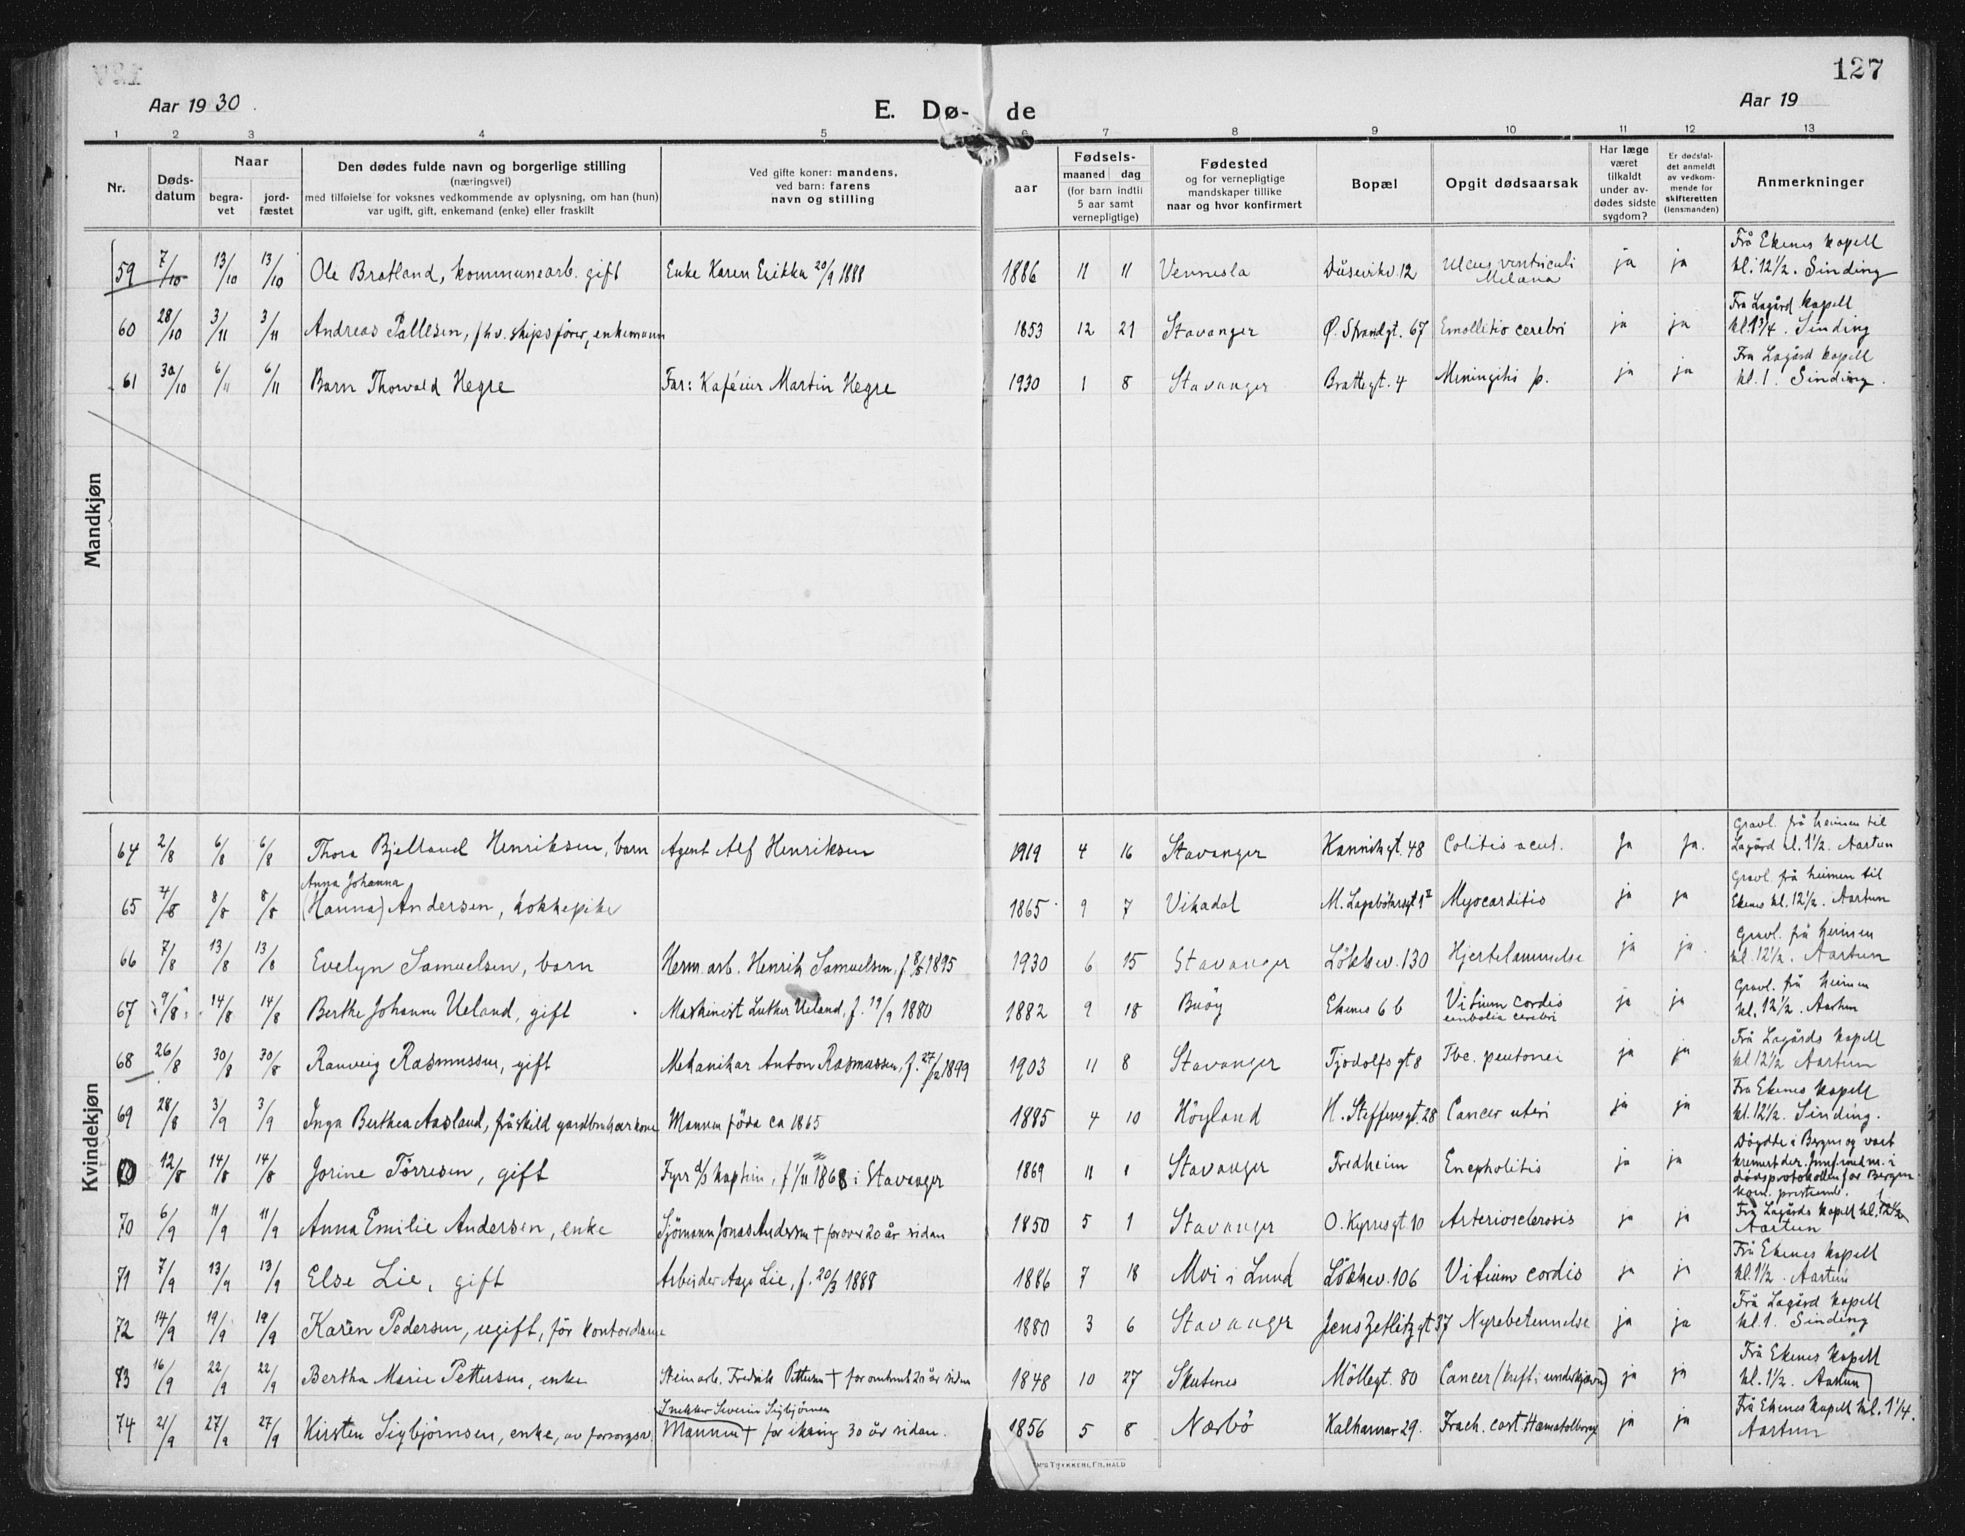 127
Aar 1930.
E. Dø-de
Aar 19
1 2 3 4 5 6 7 8 9 10 11 12 13
Nr.
Døds-datum
Naar
begra-vet
jord-fæstet
Den dødes fulde navn og borgerlige stilling
(næringsvei)
med tilføielse for voksnes vedkommende av oplysning, om han (hun)
var ugift, gift, enkemand (enke) eller fraskilt
Ved gifte koner: mandens,
ved barn: farens
navn og stilling
aar
Fødsels-
maaned dag
(for barn indtil
5 aar samt
vernepligtige)
Fødested
og for vernepligtige
mandskaper tillike
naar og hvor konfirmert
Bopæl
Opgit dødsaarsak
Har læge
været
tilkaldt
under av-
dødes sidste
sygdom?
Er dødsfal-
det anmeldt
av vedkom-
mende for
skifteretten
(lensmanden)
Anmerkninger
Mandkjøn
59 7/10 13/10 13/10 Ole Bratland, kommunearb. gift Enke Karen Erikka 20/9 1888 1886 11 11 Vennesla Dusevikv. 12 Ulcus ventriculi Melæna ja ja Frå Ekenes kapell kl. 12½. Sinding
60 28/10 3/11 3/11 Andreas Pallesen, fhv. skipsfører, enkemann 1853 12 21 Stavanger Ø. Strandgt. 67 Emollitio cerebri ja ja Fra Lagård kapell kl. 1¾. Sinding
61 30/10 6/11 6/11 Barn Thorvald Hegre Far: Kaféeier Martin Hegre 1930 1 8 Stavanger Brattegt. 4 Meningitis p. ja ja Fra Lagård kapell kl. 1. Sinding.
Kvindekjøn
64 2/8 6/8 6/8 Thora Bjelland Henriksen, barn Agent Alf Henriksen 1919 4 16 Stavanger Kannikgt. 48 Colitis acut. Ja Ja. Gravl. frå heimen til Lagård kl. 1½. Aartun
65 4/8 8/8 8/8 Anna Johanna (Hanna) Andersen, kokkepike 1865 9 7 Vikadal M. Lagabøtersgt 1 Myocarditis ja ja Gravl. frå heimen til Ekenes kl. 12½. Aartun
66 7/8 13/8 13/8 Evelyn Samuelsen, barn Herm. arb. Henrik Samuelsen, f. 8/5 1895 1930 6 15 Stavanger Løkkev. 130 Hjertelammelse ja ja Gravl. frå heimen kl. 12½. Aartun
67 9/8 14/8 14/8 Berthe Johanne Ueland, gift Maskinist Luther Ueland, f. 19/9 1880 1882 9 18 Buøy Ekenes 6 b Vitium cordis embolia cerebri ja ja Gravl. frå heimen kl. 12½. Aartun
68 26/8 30/8 30/8 Ranveig Rasmussen, gift Mekaniker Anton Rasmussen, f. 27/12 1899 1903 11 8 Stavanger Tjodolfsgt 8 Tbc. peritonei ja ja Frå Lagårds kapell kl 12½ Aartun
69 28/8 3/9 3/9 Inga Berthea Aasland, fråskild gardbrukarkone Mannen føda ca 1865 1885 4 10 Høyland H. Steffensgt. 28 Cancer uteri ja ja Fra Ekenes kapell kl. 12½ Sinding.
12/8 14/8 14/8 Jorine Tørresen, gift Fyrr d/s kaptein, f 1/11 1868 i Stavanger 1869 11 1 Stavanger Fredheim Encepholitis ja ja Døydde i Bergen og vart kremert der. Innf. med nr. i dødsprotokollen for Bergen
70 6/9 11/9 11/9 Anna Emilie Andersen, enke Sjømann Jonas Andersen † for over 20 år sidan 1850 5 1 Stavanger O. Kyrresgt 10 Arteriosclerosis ja ja Frå Lagårds kapell kl. 12½ Aartun
71 7/9 13/9 13/9 Else Lie, gift Arbeider Aage Lie, f. 20/3 1888 1886 7 18 Moi i Lund Løkkev. 106 Vitium cordis ja ja Frå Ekenes kapell kl. 1½. Aartun
72 14/9 19/9 19/9 Karen Pedersen, ugift, før kontordame 1880 3 6 Stavanger Jens Zetlitzgt 37 Nyrebetennelse ja ja Frå Lagård kapell kl. 1. Sinding
83 16/9 22/9 22/9 Bertha Marie Pettersen, enke Steinarb. Fredrik Pettersen † for omtrent 20 år sidan 1848 10 27 Skutenes Møllegt. 80 Cancer (kreft i underkjæven) ja ja Frå Ekenes kapell kl. 1½. Aartun
74 21/9 27/9 27/9 Kirsten Sigbjørnsen, enke, av forsorgsv. Snekker Severin Sigbjørnsen Mannen † for ikring 30 år sidan. 1856 5 8 Nærbø Kalhammar 29. Frach. cost ja ja Frå Ekenes kapell kl. 1¼. Aartun